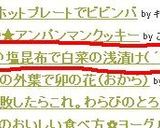 ホットプレートでビビンバ by キ
★アンパンマンクッキー by こ
塩昆布で白菜の浅漬け(
の外葉で卯の花(おから) by
敗したらこれ。わらびのとろ
のおいしい食べ方★ヨーグ